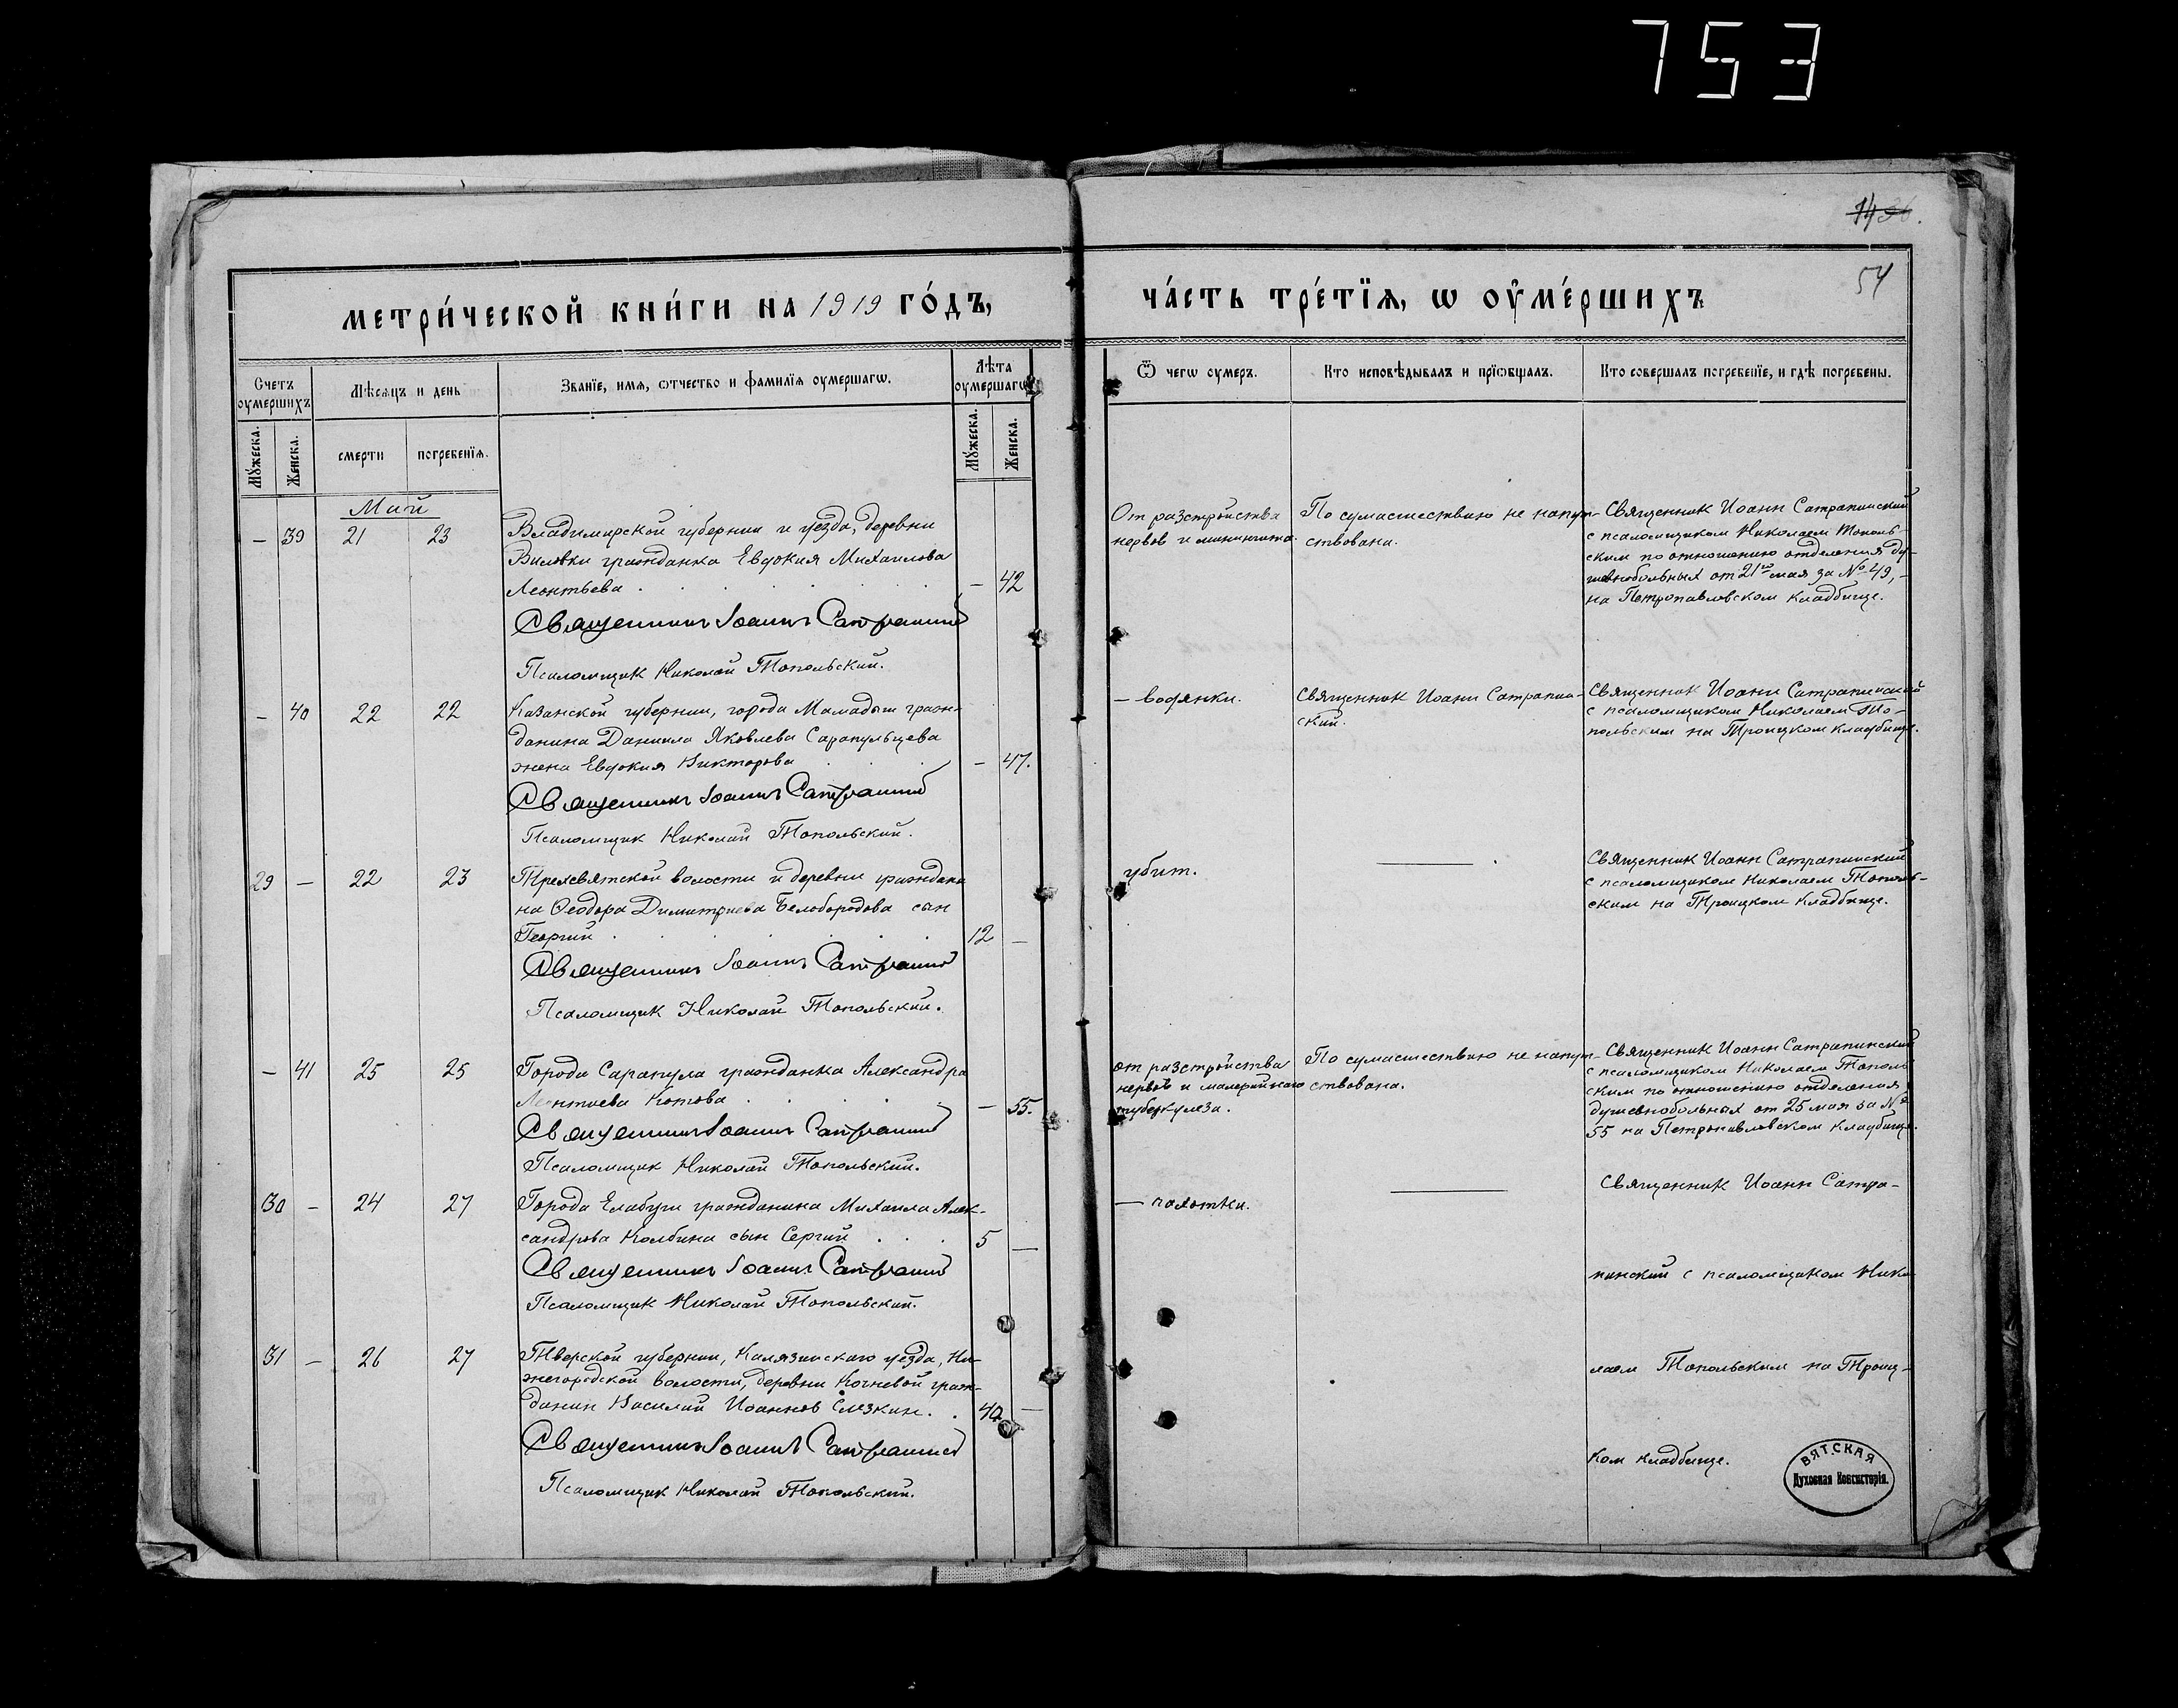 753
54
МЕТРИ́ЧЕСКОЙ КНИ́ГИ НА 1919 ГО́ДЪ,
ЧА́СТЬ ТРЕ́ТЇѦ, Ѡ ОУ҆МЕ́РШИХЪ
Счетъ оумершихъ
Мѣсяцъ и день
Званїе, имѧ, ѿчество и фамилїѧ оумершагѡ.
Лѣта оумершагѡ
Ѿ чегѡ оумеръ.
Кто исповѣдывалъ и прїѡбщалъ.
Кто совершалъ погребенїе, и гдѣ погребены.
Мужеска.
Женска.
смерти
погребенїѧ.
Мужеска.
Женска.
Май
— 39 21 23
Владимирской губернии и уезда, деревни
гражданка Евдокия Михаилова
Леонтьева — 42
Священник Иоанн Сатрапинский
Псаломщик Николай Топольский.
От разстройства
нервов и менингита.
По сумасшествию не напут-
ствована.
Священник Иоанн Сатрапинский
с псаломщиком Николаем Тополь-
ским по отношению отделения ду-
шевнобольных от 21го мая за № 49, —
на Петропавловском кладбище.
— 40 22 22
Казанской губернии, города Мамадыш граж-
данина Даниила Яковлева Сарапульцева
жена Евдокия Викторова — 47.
Священник Иоанн Сатрапинский
Псаломщик Николай Топольский.
— водянки.
Священник Иоанн Сатрапин-
ский.
Священник Иоанн Сатрапинский
с псаломщиком Николаем То-
польским на Троицком кладбище.
29 — 22 23
Трехсвятской волости и деревни граждани
на Феодора Димитриева Белобородова сын
Георгий 12 —
Священник Иоанн Сатрапинский
Псаломщик Николай Топольский.
убит.
Священник Иоанн Сатрапинский
с псаломщиком Николаем Тополь-
ским на Троицком кладбище.
— 41 25 25
Города Сарапула гражданка Александра
Леонтиева Котова — 55.
Священник Иоанн Сатрапинский
Псаломщик Николай Топольский.
от разстройства
нервов и малярийнаго
туберкулеза.
По сумасшествию не напут-
ствована.
Священник Иоанн Сатрапинский
с псаломщиком Николаем Тополь
ским по отношению отделения
душевнобольных от 25 мая за №
55 на Петропавловском кладбище.
30 — 24 27
Города Елабуги гражданина Михаила Алек-
сандрова Колбина сын Сергий 5 —
Священник Иоанн Сатрапинский
Псаломщик Николай Топольский.
— чахотки.
31 — 26 27
Тверской губернии, Калязинскаго уезда, Ни-
жегородской волости, деревни Кочневой граж-
данин Василий Иоаннов Слезкин. 42 —
Священник Иоанн Сатрапинский
Псаломщик Николай Топольский.
Священник Иоанн Сатра-
пинский с псаломщиком Нико-
лаем Топольским на Троиц-
ком кладбище.
ВЯТСКАЯ
Духовная Консисторія.